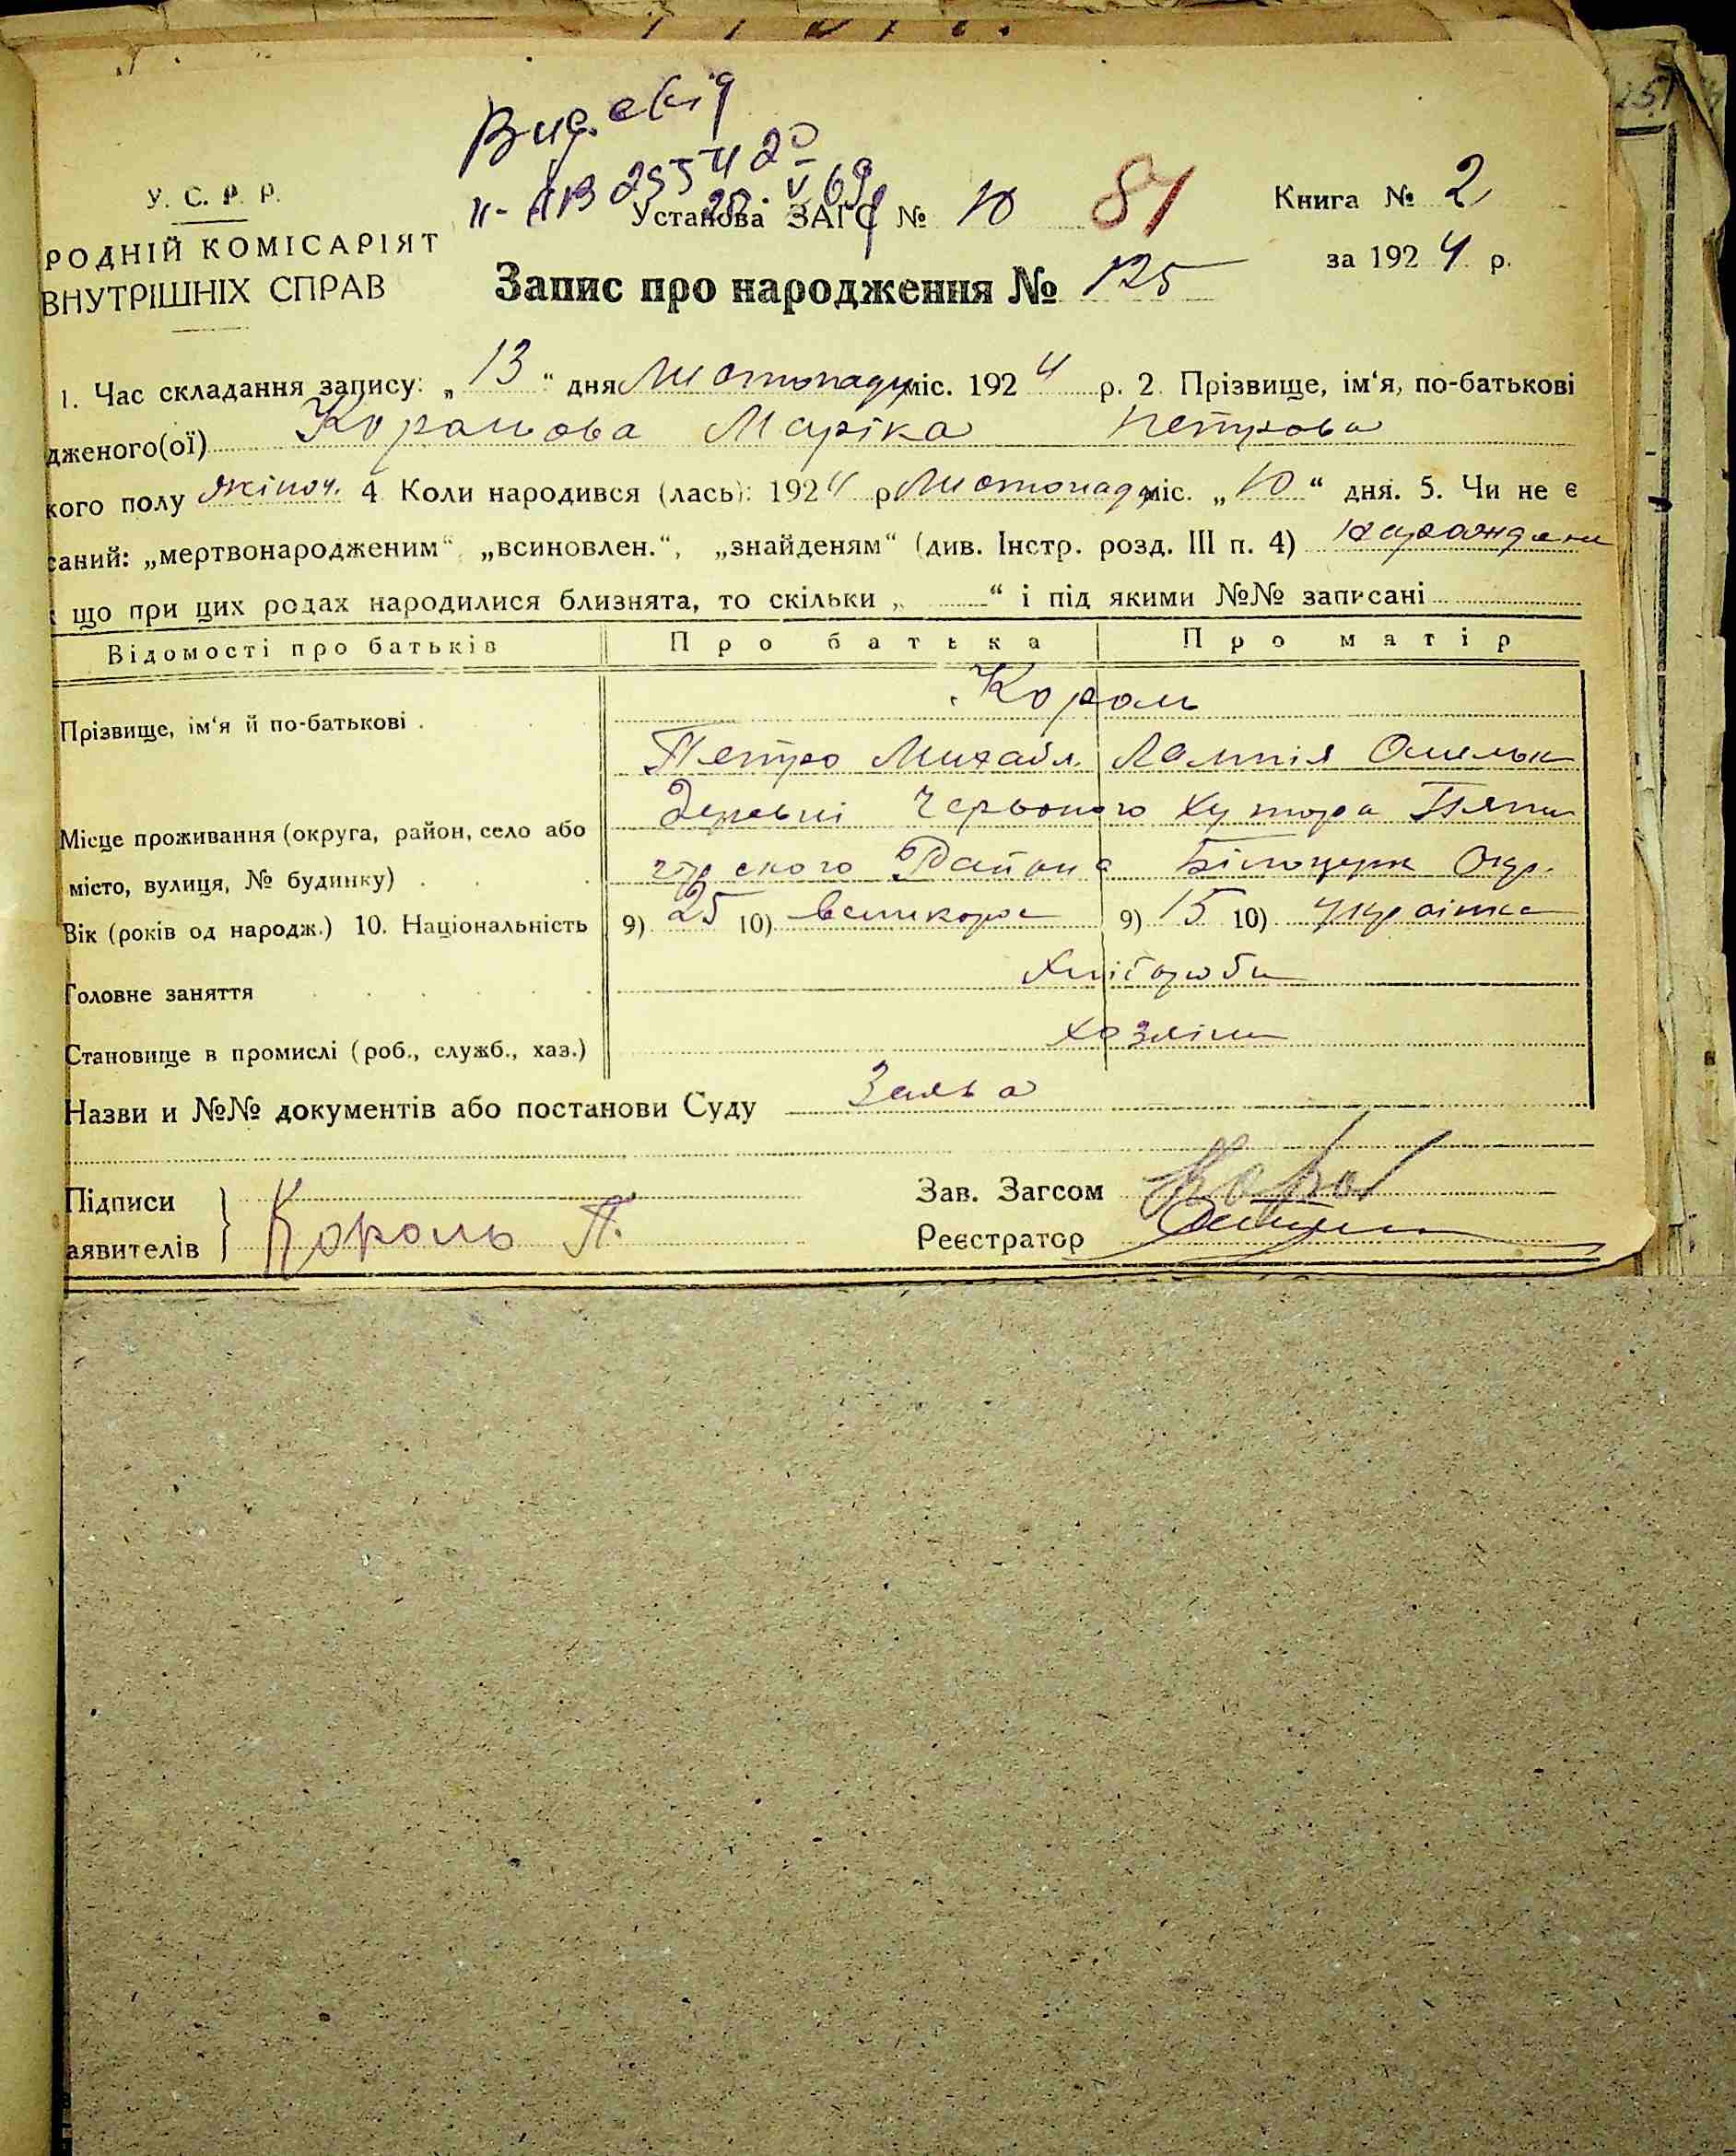 Вид. свід
У. С. Р. Р.
II-АВ 255420
20. V 69
Установа ЗАГС № 10
81
Книга № 2
РОДНІЙ КОМІСАРІЯТ
за 1924 р.
ВНУТРІШНІХ СПРАВ
Запис про народження № 125
1. Час складання запису: „13“ дня Листопаду міс. 1924 р. 2. Прізвище, ім‘я, по-батькові
дженого(ої) Королова Маріка Петрова
кого полу жіноч. 4 Коли народився (лась): 1924 р Листопаду міс. „10“ дня. 5. Чи не є
саний: „мертвонародженим“, „всиновлен.“, „знайденям“ (див. Інстр. розд. III п. 4)
що при цих родах народилися близнята, то скільки „ “ і під якими №№ записані
Відомості про батьків Про батька Про матір
Король
Прізвище, ім‘я й по-батькові .
Петро Михайл. Лампія Омельк
Деревні Червоного Хутора
Місце проживання (округа, район, село або
ского Района Білоцерк Окр.
місто, вулиця, № будинку) .
Вік (років од народж.) 10. Національність 9) 25 10) великорос 9) 15 10) Українка
Хлібороби
Головне заняття
хозяіни
Становище в промислі (роб., служб., хаз.)
Назви и №№ документів або постанови Суду Заява
Підписи
аявителів
Король П.
Зав. Загсом
Реєстратор